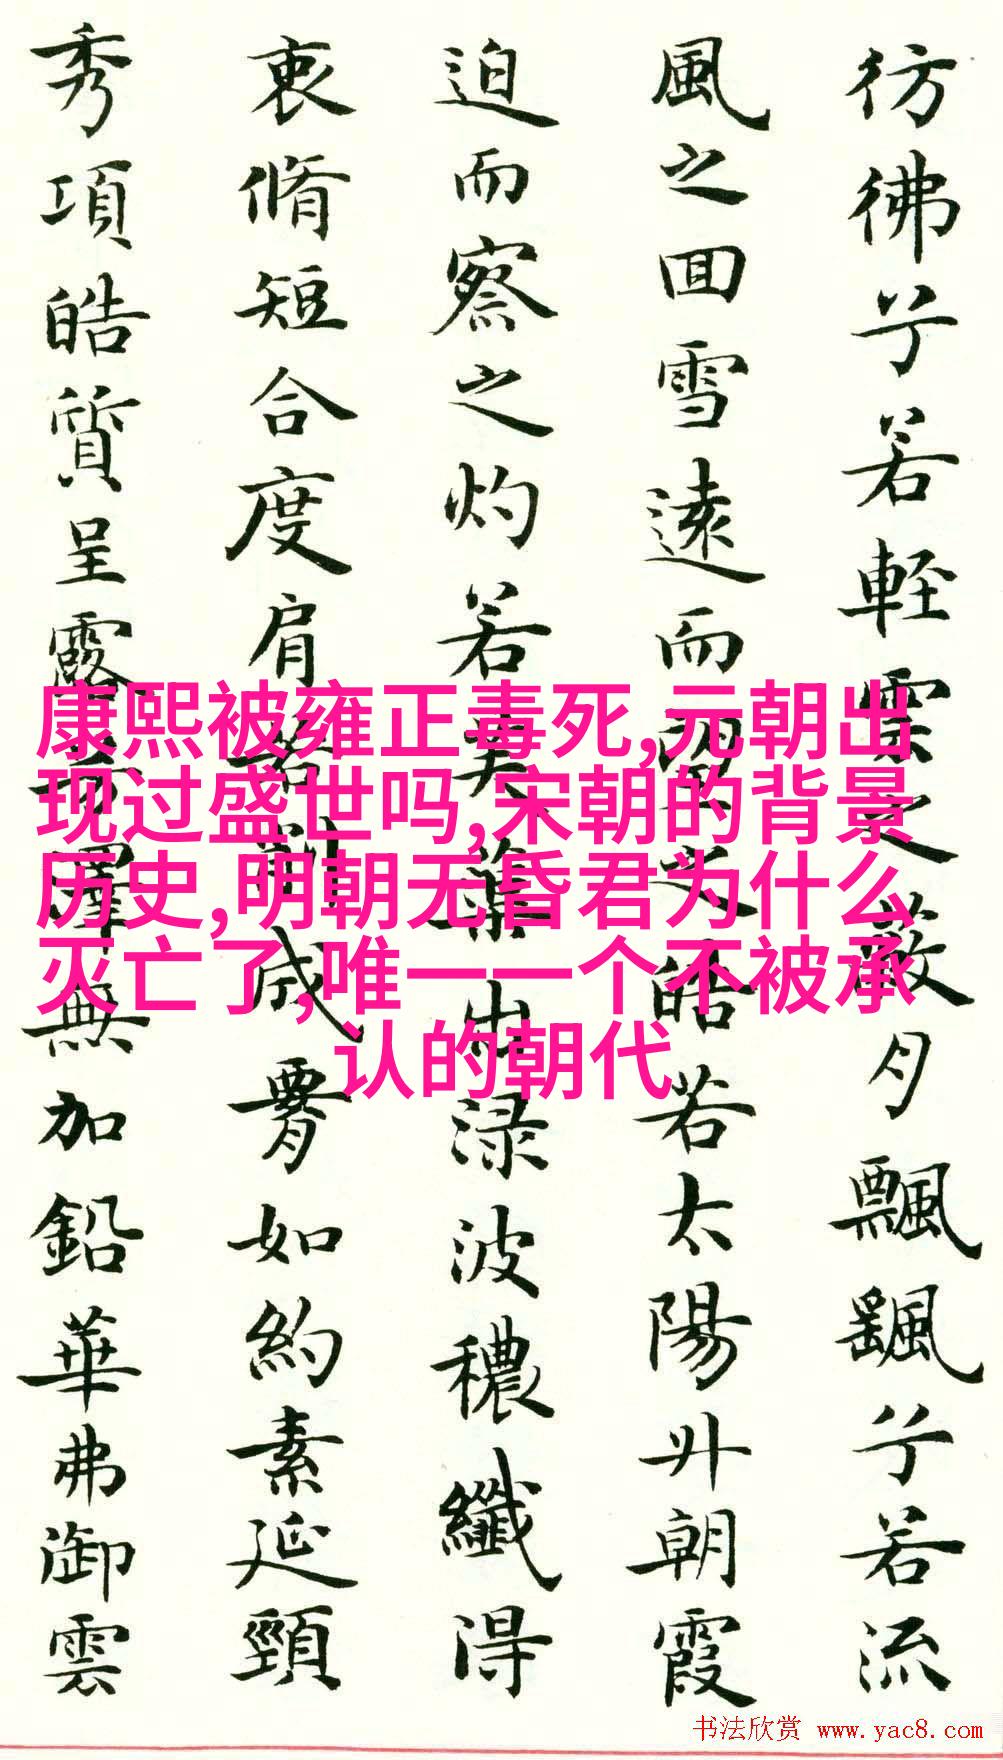 彷彿兮若輕雲之蔽月飄飖兮若流
風之回雪遠而望之皎若太陽升朝霞
迫而察之灼若芙蕖出渌波穠纖得
衷脩短合度肩若削成腰如約素延頸
秀項皓質呈露芳澤無加鉛華弗御雲
康熙被雍正毒死,元朝出
现过盛世吗,宋朝的背景
历史,明朝无昏君为什么
灭亡了,唯一一个不被承
认的朝代
书法欣赏 www.yac8.com